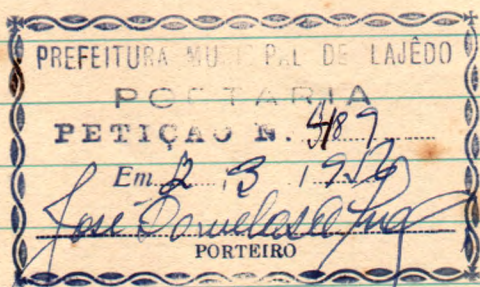 PREFEITURA MUNICIPAL DE LAJÊDO
PORTARIA
PETIÇÃO N. 489
Em 12 3 195
José
PORTEIRO